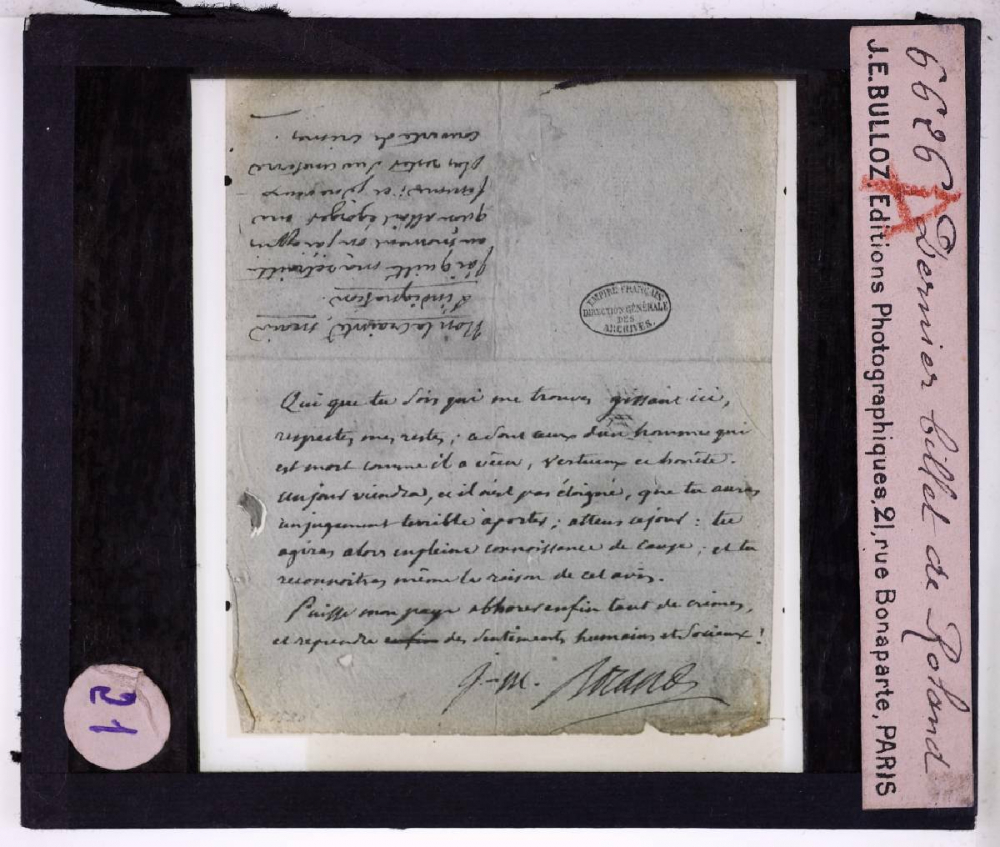 6626 Dernier billet de Roland
J.E. BULLOZ. Editions Photographiques, 21, rue Bonaparte, PARIS
A
21
EMPIRE FRANÇAIS
DIRECTION GÉNÉRALE
DES
ARCHIVES.
Non la crainte, mais
l'indignation.
J'ai quitté ma retraite
au moment où j'ai appris
qu'on alloit égorger ma
femme; et je ne veux
plus rester sur une terre
couverte de crimes.
Qui que tu sois qui me trouves gissant ici,
respectes mes restes; ce sont ceux d'un homme qui
est mort comme il a vécu, vertueux et honnête.
un jour viendra, et il n'est pas éloigné, que tu auras
un jugement terrible à porter; attens ce jour: tu
agiras alors en pleine connoissance de cause, et tu
reconnoitras même la raison de cet avis.
Puisse mon pays abhorer enfin tant de crimes,
et reprendre enfin des sentiments humains et sociaux!
J.-M. Roland